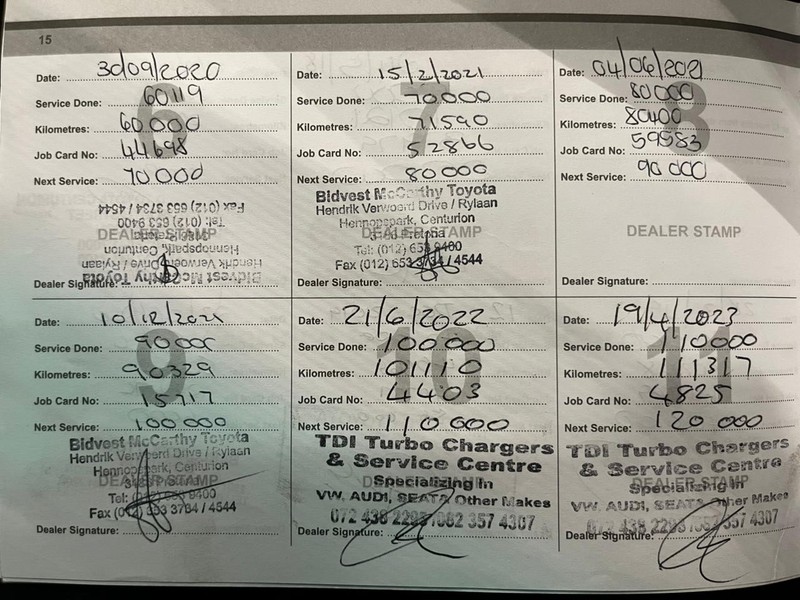 15
Date: 30/09/2020
Service Done: 60119
Kilometres: 60.000
Job Card No: 44698
Next Service: 70000
6
DEALER STAMP
Bidvest McCarthy Toyota
Hendrik Verwoerd Drive / Rylaan
Hennopspark, Centurion
Tel: (012) 653 9400
Fax (012) 653 3784 / 4544
Dealer Signature:
Date: 15/2/2021
Service Done: 70.000
Kilometres: 71590
Job Card No: 52866
Next Service: 80000
7
Bidvest McCarthy Toyota
Hendrik Verwoerd Drive / Rylaan
Hennopspark, Centurion
DEALER STAMP
Tel: (012) 653 9400
Fax (012) 653 3784 / 4544
Dealer Signature:
Date: 04/06/2021
Service Done: 80000
Kilometres: 80400
Job Card No: 59583
Next Service: 90000
8
DEALER STAMP
Dealer Signature:
Date: 10/12/2021
Service Done: 90000
Kilometres: 90329
Job Card No: 15717
Next Service: 100000
9
Bidvest McCarthy Toyota
Hendrik Verwoerd Drive / Rylaan
Hennopspark, Centurion
DEALER STAMP
Tel: (012) 653 9400
Fax (012) 653 3784 / 4544
Dealer Signature:
Date: 21/6/2022
Service Done: 100000
Kilometres: 101110
Job Card No: 4403
Next Service: 110000
10
TDI Turbo Chargers
& Service Centre
Specializing in
VW, AUDI, SEAT & Other Makes
072 438 2293 / 082 357 4307
Dealer Signature:
Date: 19/4/2023
Service Done: 110000
Kilometres: 111317
Job Card No: 4825
Next Service: 120000
11
TDI Turbo Chargers
& Service Centre
DEALER STAMP
Specializing in
VW, AUDI, SEAT & Other Makes
072 438 2293 / 082 357 4307
Dealer Signature: